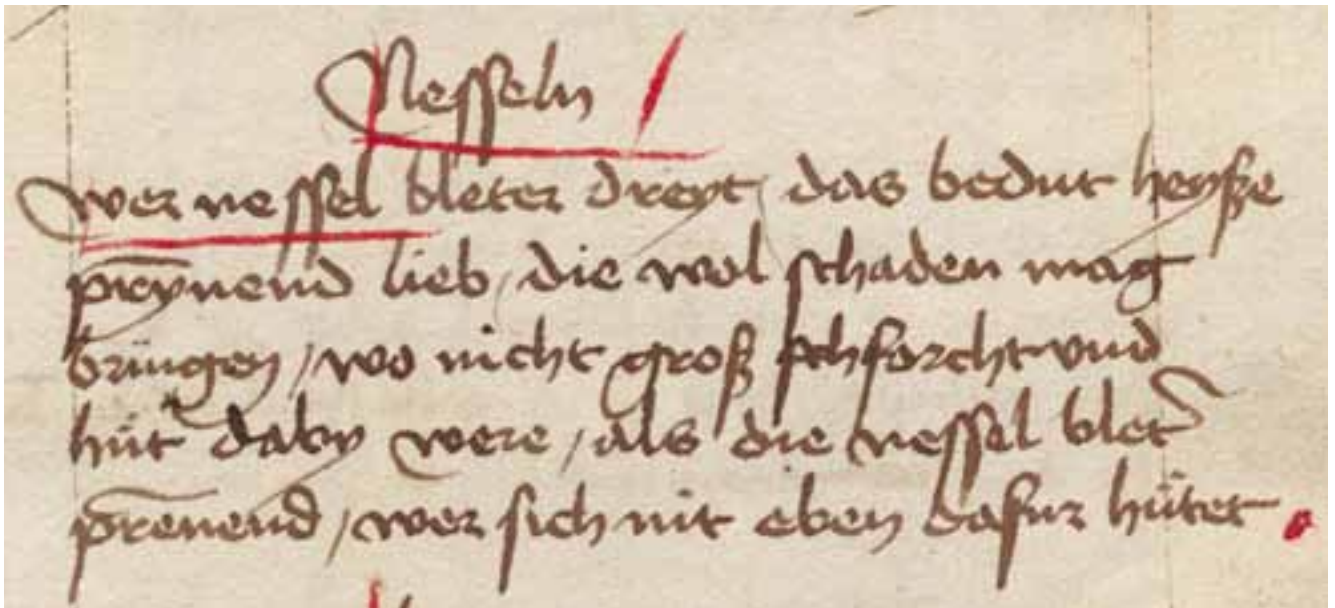 Nesseln
wer nessel bleter dreyt / das bedut heysze
prynend lieb / die wol schaden mag
bringen / wo nicht groß forcht vnd
hüt daby were / als die nessel bleter
prenend / wer sich nit eben dafur hütet